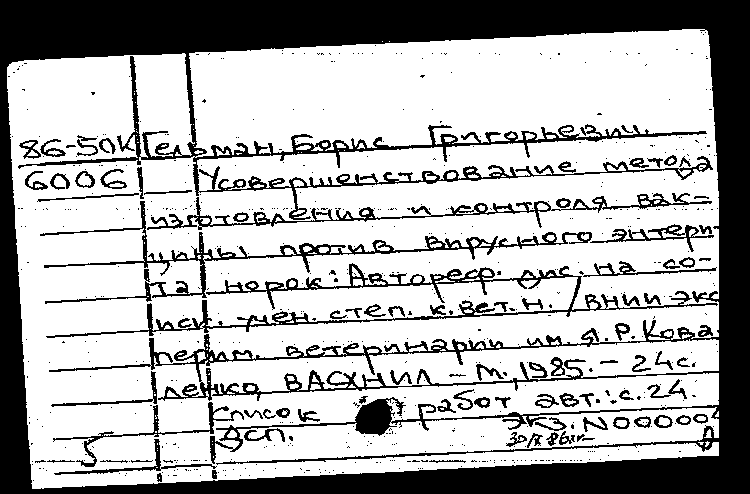 86-50К Гельман, Борис Григорьевич.
6006 Усовершенствование метода
изготовления и контроля вак=
цины против вирусного энтери-
та норок: Автореф. дис. на со-
иск. учен. степ. к.вет.н. / ВНИИ экс
перим. ветеринарии им. Я.Р. Кова
ленко, ВАСХНИЛ. - М., 1985. - 24 с.
Список работ авт.: с. 24.
Дсп. Экз. N000004
5